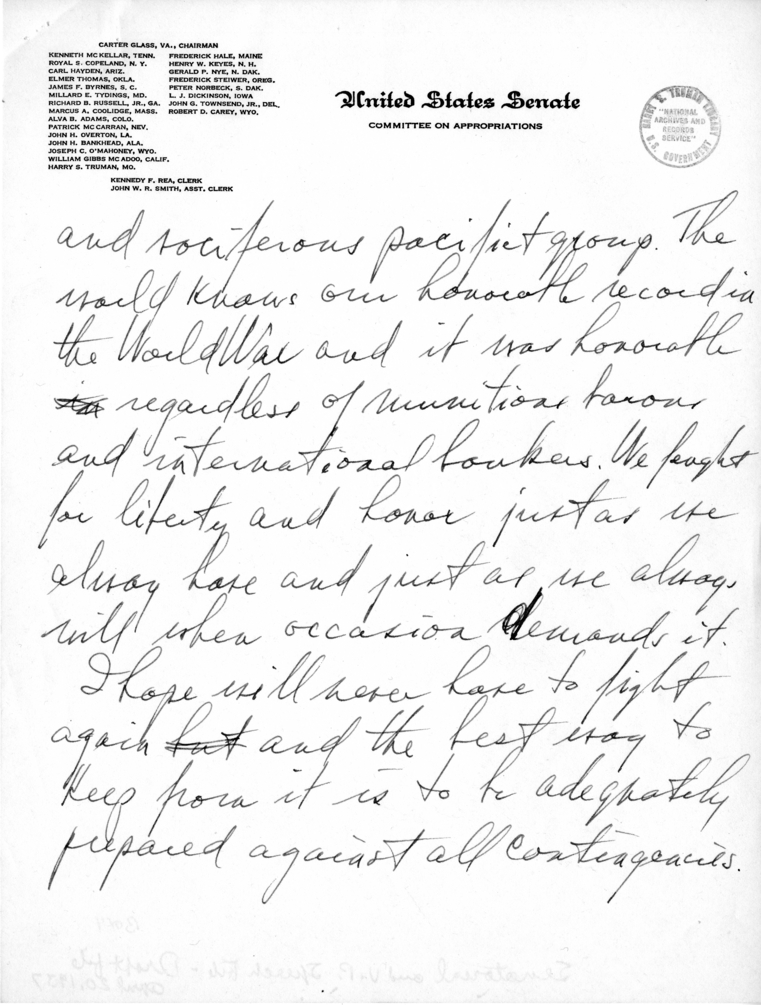 CARTER GLASS, VA., CHAIRMAN
KENNETH MCKELLAR, TENN.
ROYAL S. COPELAND, N. Y.
CARL HAYDEN, ARIZ.
ELMER THOMAS, OKLA.
JAMES F. BYRNES, S. C.
MILLARD E. TYDINGS, MD.
RICHARD B. RUSSELL, JR., GA.
MARCUS A. COOLIDGE, MASS.
ALVA B. ADAMS, COLO.
PATRICK MCCARRAN, NEV.
JOHN H. OVERTON, LA.
JOHN H. BANKHEAD, ALA.
JOSEPH C. O'MAHONEY, WYO.
WILLIAM GIBBS MCADOO, CALIF.
HARRY S. TRUMAN, MO.
FREDERICK HALE, MAINE
HENRY W. KEYES, N. H.
GERALD P. NYE, N. DAK.
FREDERICK STEIWER, OREG.
PETER NORBECK, S. DAK.
L. J. DICKINSON, IOWA
JOHN G. TOWNSEND, JR., DEL.
ROBERT D. CAREY, WYO.
KENNEDY F. REA, CLERK
JOHN W. R. SMITH, ASST. CLERK
United States Senate
COMMITTEE ON APPROPRIATIONS
HARRY S. TRUMAN LIBRARY
"NATIONAL
ARCHIVES AND
RECORDS
SERVICE"
U.S. GOVERNMENT
and vociferous pacifict group. The
world knows our honorable record in
the World War and it was honorable
in regardless of munitions barons
and international bankers. We fought
for liberty and honor just as we
alway have and just as we always
will when occasion demands it.
I hope we'll never have to fight
again but and the best way to
keep from it is to be adequately
prepared against all contingencies.